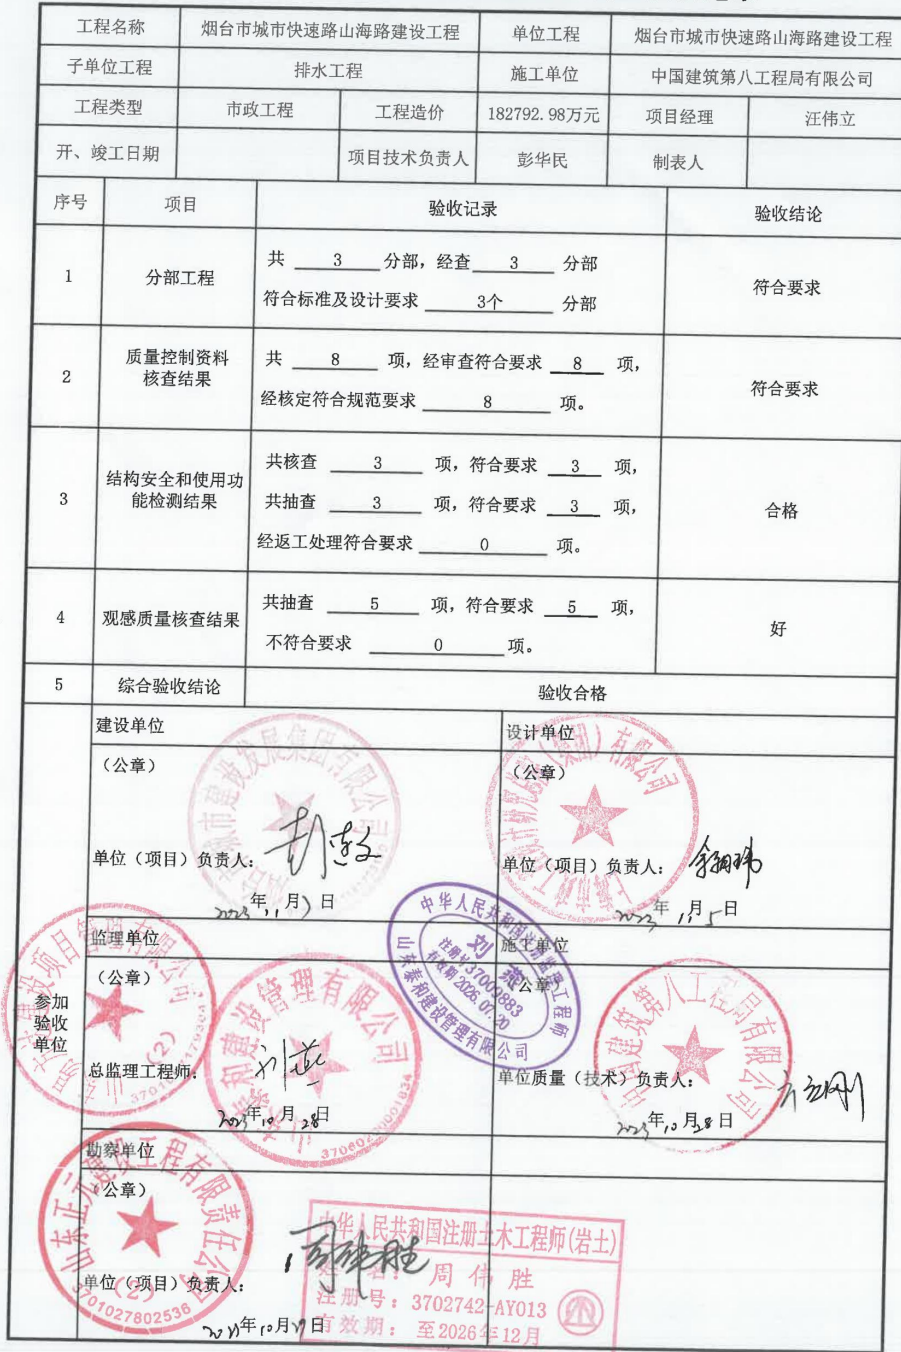 工程名称 烟台市城市快速路山海路建设工程 单位工程 烟台市城市快速路山海路建设工程
子单位工程 排水工程 施工单位 中国建筑第八工程局有限公司
工程类型 市政工程 工程造价 182792.98万元 项目经理 汪伟立
开、竣工日期 项目技术负责人 彭华民 制表人
序号 项目 验收记录 验收结论
1 分部工程
共 3 分部，经查 3 分部
符合标准及设计要求 3个 分部
符合要求
2 质量控制资料
核查结果
共 8 项，经审查符合要求 8 项，
经核定符合规范要求 8 项。
符合要求
3 结构安全和使用功
能检测结果
共核查 3 项，符合要求 3 项，
共抽查 3 项，符合要求 3 项，
经返工处理符合要求 0 项。
合格
4 观感质量核查结果
共抽查 5 项，符合要求 5 项，
不符合要求 0 项。
好
5 综合验收结论 验收合格
参加
验收
单位
建设单位
（公章）
单位（项目）负责人：
2023年11月7日
设计单位
（公章）
单位（项目）负责人：
2023年11月5日
监理单位
（公章）
总监理工程师：刘燕
2023年10月28日
施工单位
（公章）
单位质量（技术）负责人：
2023年10月28日
中华人民共和国注册监理工程师
刘燕
注册号37009883
有效期2026.07.20
山东泰和建设管理有限公司
中国建筑第八工程局有限公司
勘察单位
（公章）
单位（项目）负责人：周伟胜
年10月29日
山东正元建设工程有限责任公司
（2）
3701027802536
中华人民共和国注册土木工程师(岩土)
姓名：周伟胜
注册号：3702742-AY013
有效期：至2026年12月